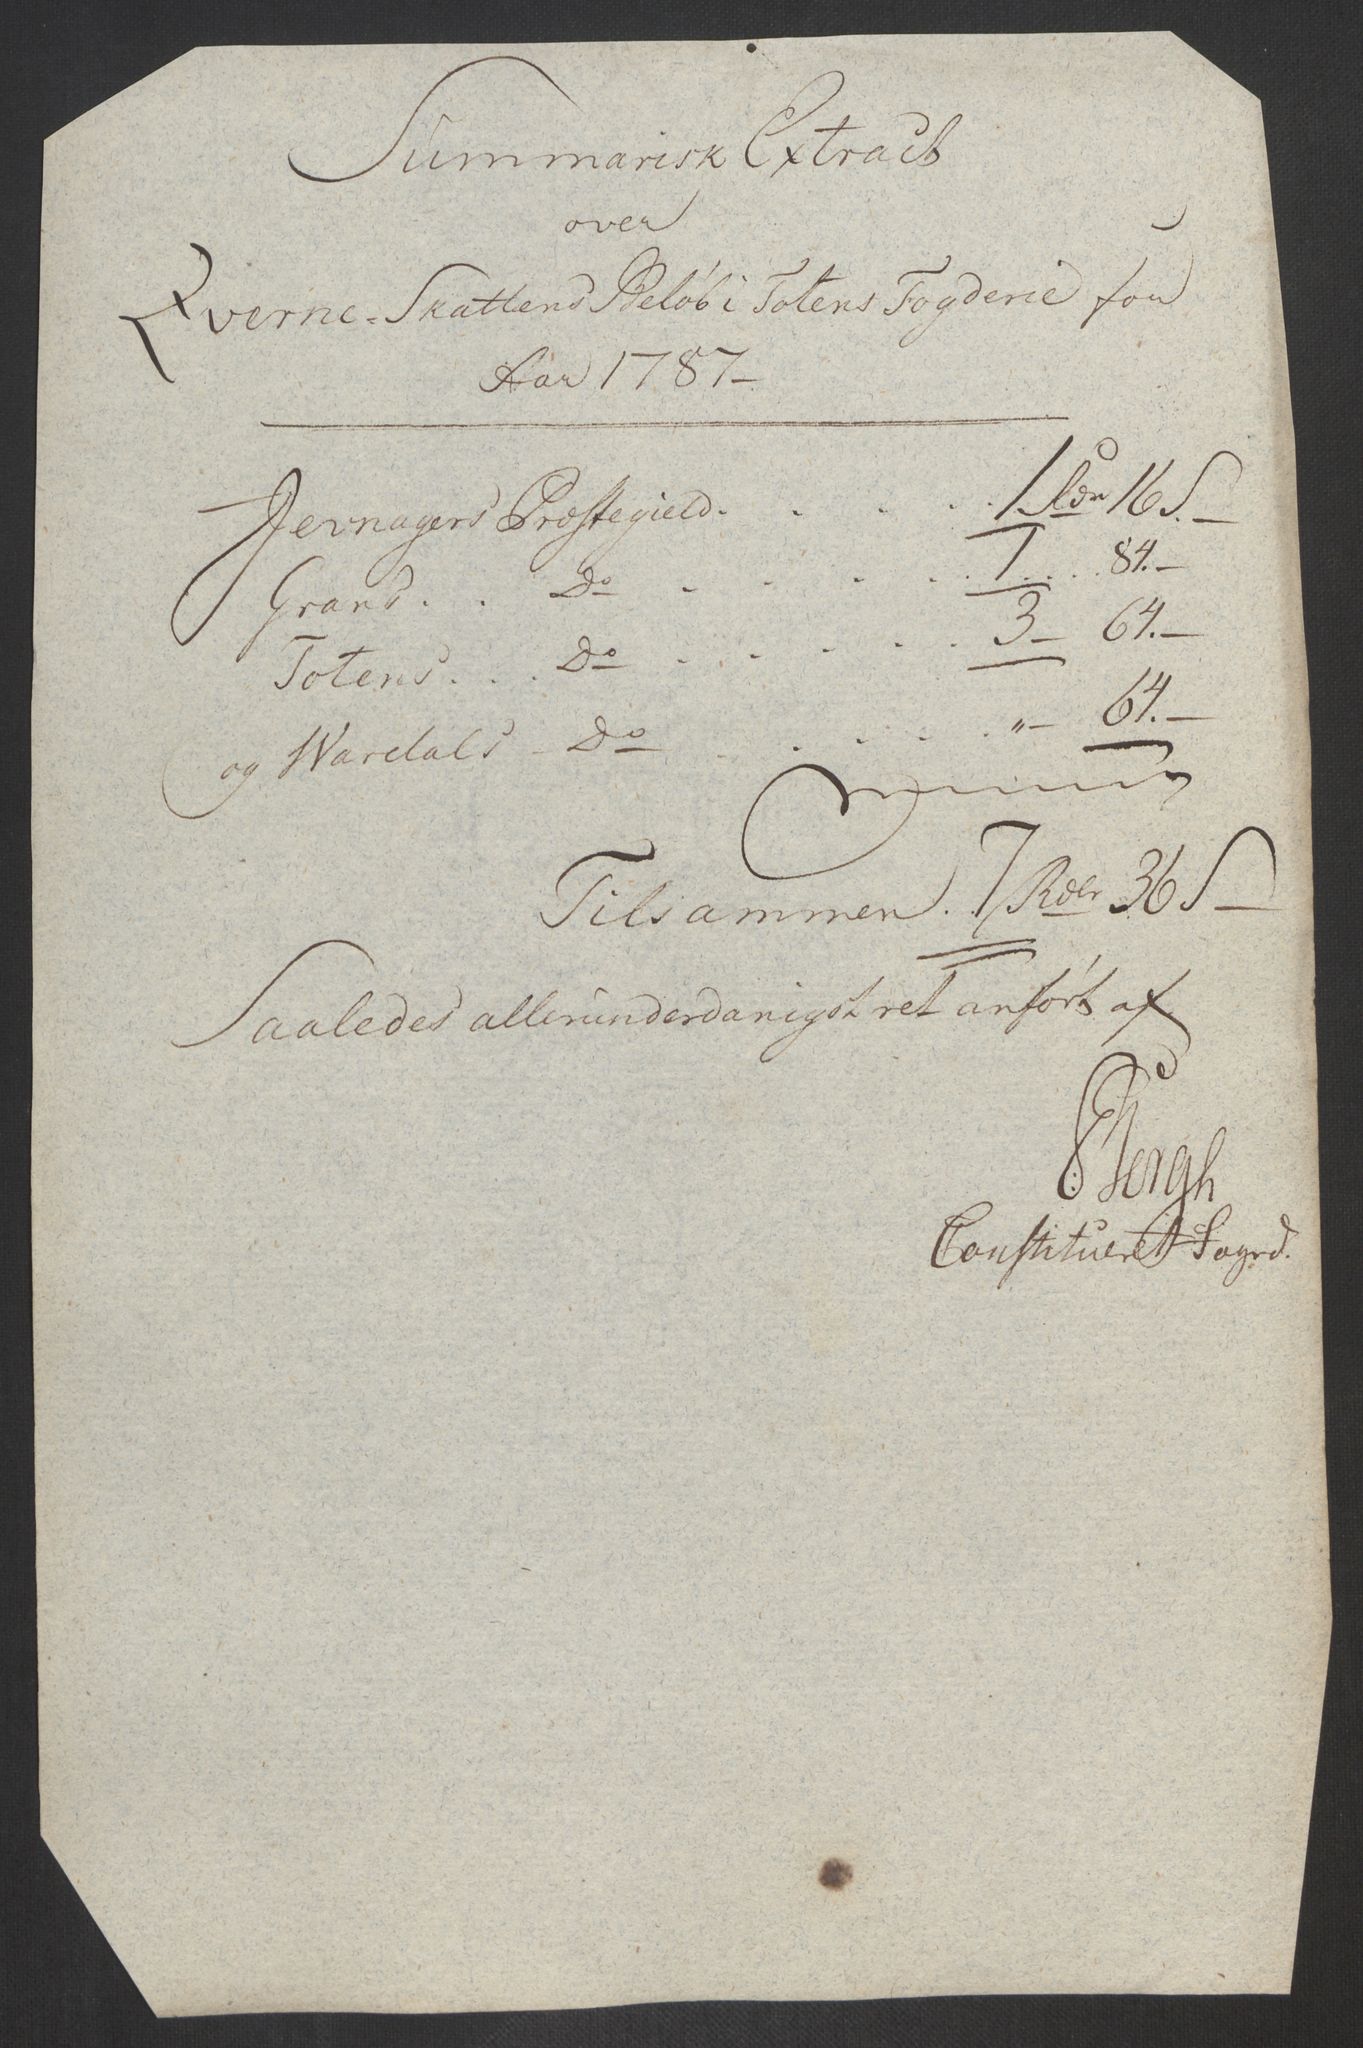 Summarisk Extract
over
Qverne-Skattens Beløb i Totens Fogderie for
Aar 1787-
Jevnagers Præstegield. . . . . . 1 Rdr 16 S. -
Grans . . Do . . . . . . 1 . . . 84. -
Totens . . . Do . . . . . 3 - 64. -
og Wardals - Do . . . . . " - 64. -
Tilsammen . 7 Rdlr 36 S -
Saaledes allerunderdanigst ret anført af
Bergh
Constitueret Foged.